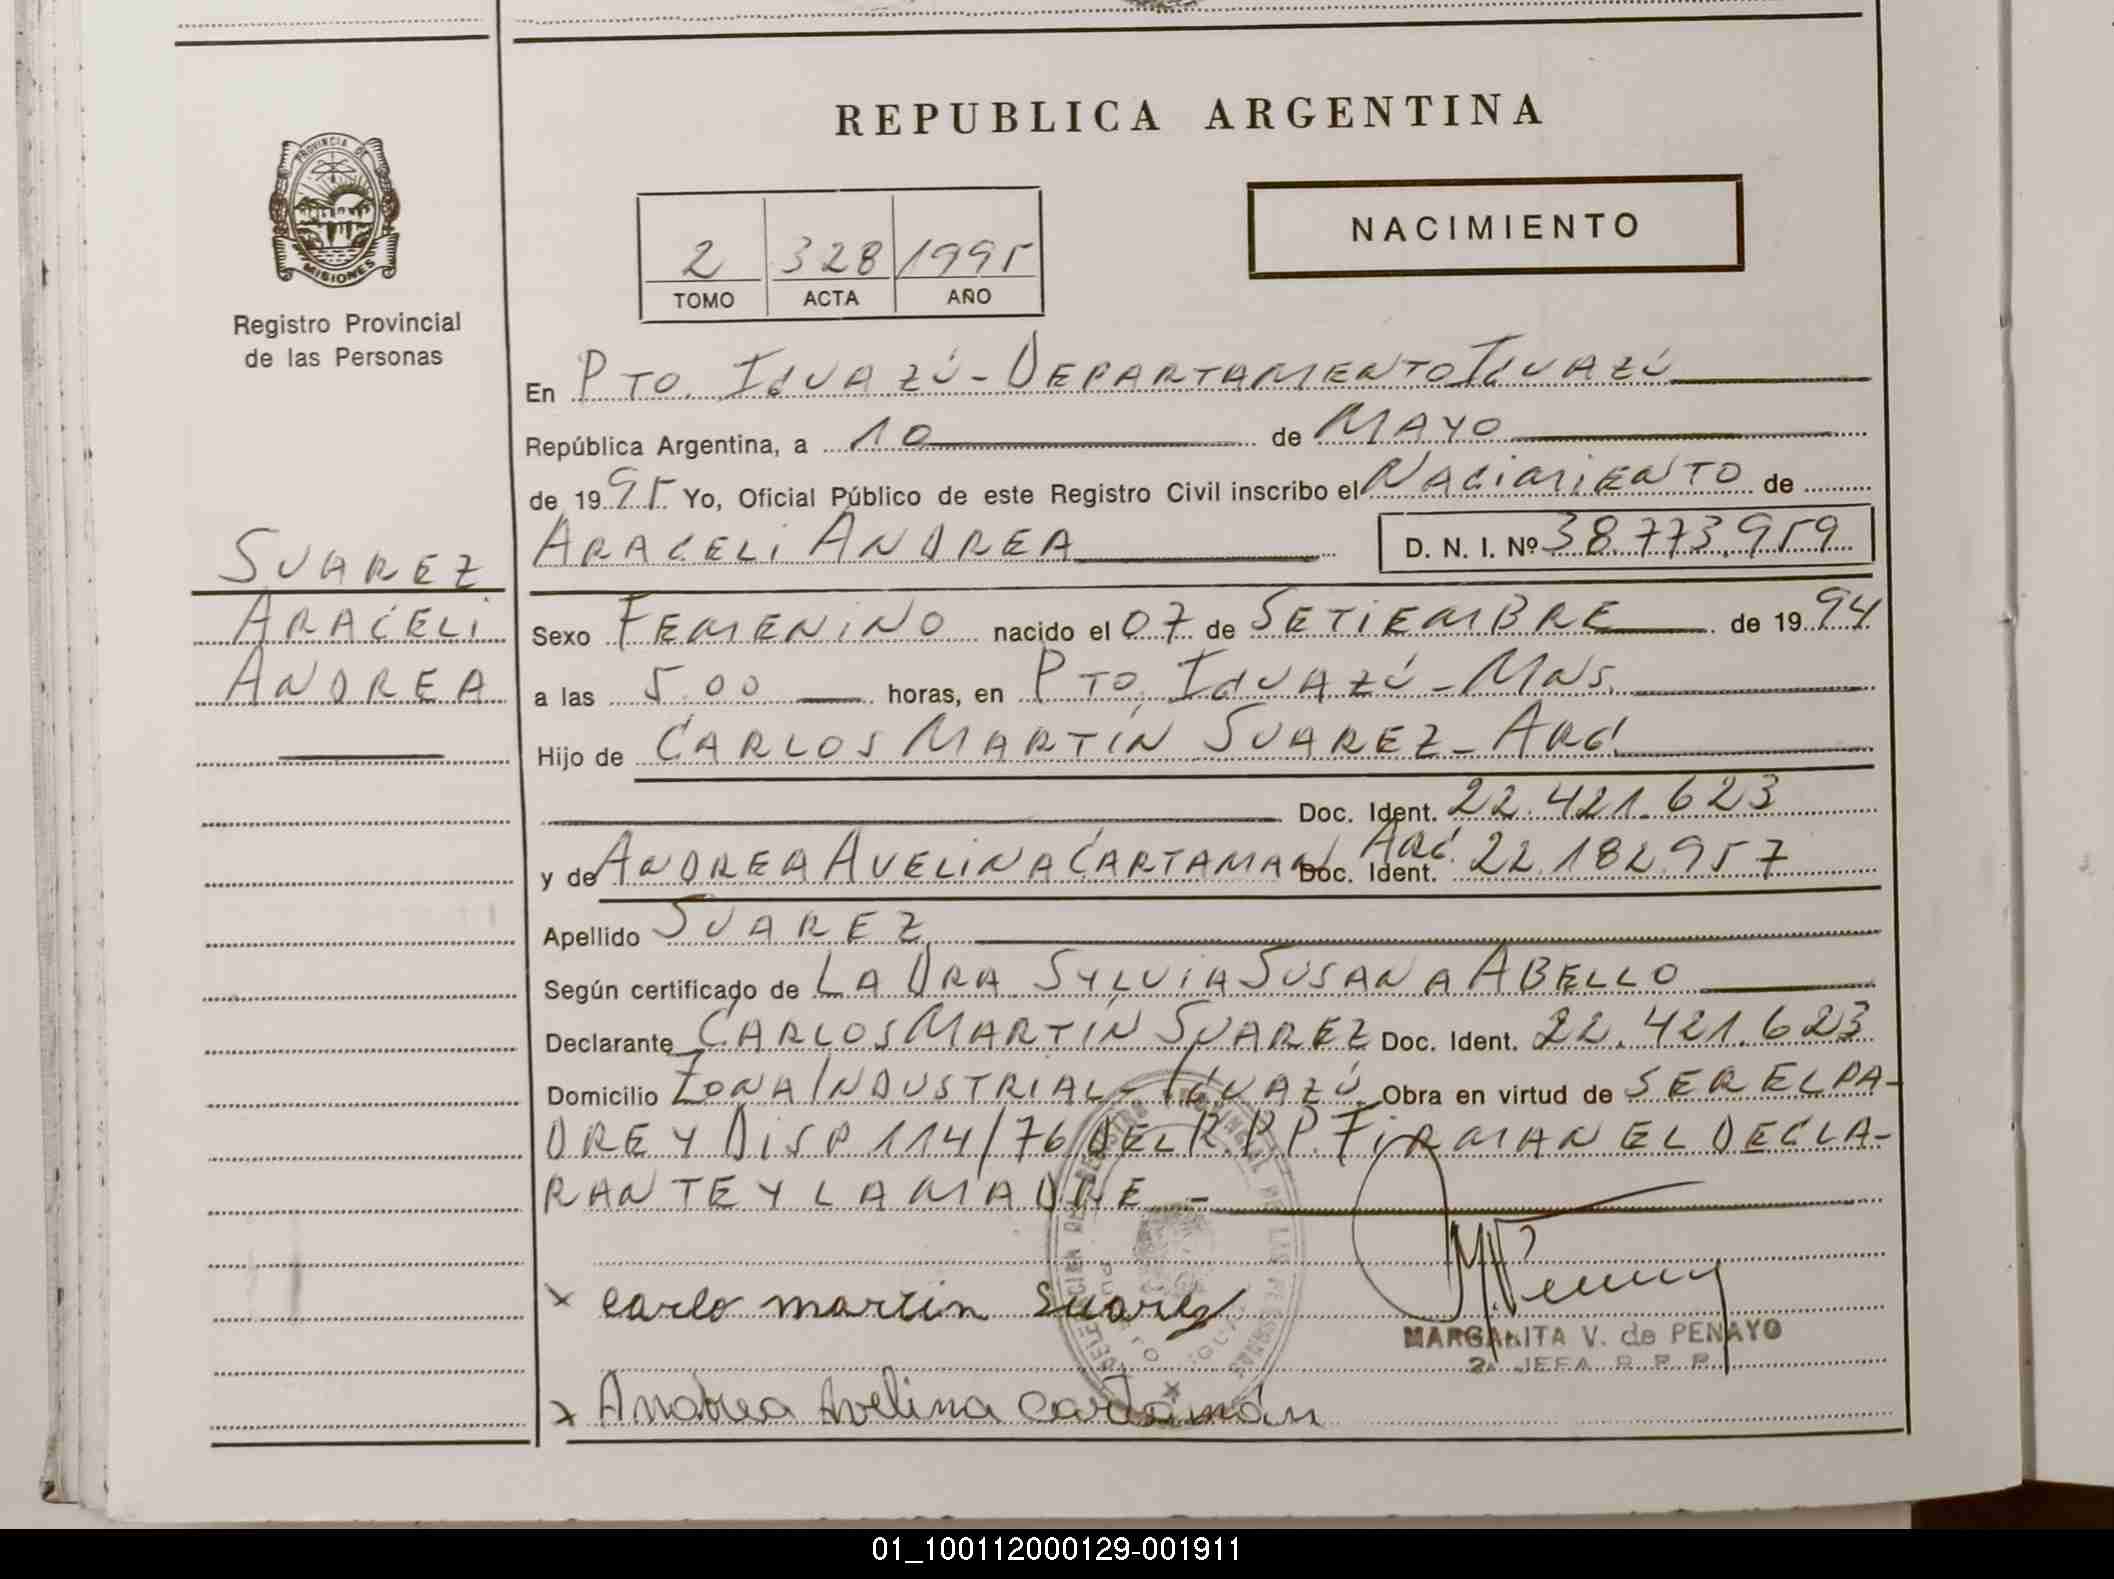 REPUBLICA ARGENTINA
PROVINCIA DE
MISIONES
Registro Provincial
de las Personas
NACIMIENTO
2 328 1995
TOMO ACTA AÑO
En PTO. IGUAZÚ - DEPARTAMENTO IGUAZÚ
República Argentina, a 10 de MAYO
de 1995 Yo, Oficial Público de este Registro Civil inscribo el NACIMIENTO de
ARACELI ANDREA D. N. I. Nº 38.773.959
SUAREZ
ARACELI
ANDREA
Sexo FEMENINO nacido el 07 de SETIEMBRE de 1994
a las 5.00 horas, en PTO. IGUAZÚ - MNS.
Hijo de CARLOS MARTÍN SUAREZ - ARG.
Doc. Ident. 22.421.623
y de ANDREA AVELINA CARTAMAN ARG. Doc. Ident. 22.182.957
Apellido SUAREZ
Según certificado de LA DRA SYLVIA SUSANA ABELLO
Declarante CARLOS MARTÍN SUAREZ Doc. Ident. 22.421.623
Domicilio ZONA INDUSTRIAL - IGUAZÚ Obra en virtud de SER EL PA-
DRE Y DISP 114/76 DEL R.P.P. FIRMAN EL DECLA-
RANTE Y LA MADRE -
x Carlo martin Suarez
MARGARITA V. de PENAYO
2a JEFA R. P. P.
x Andrea Avelina Cartamán
01_100112000129-001911